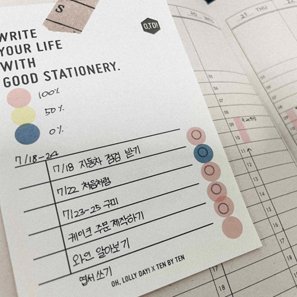 S
O,TD!
WRITE
YOUR LIFE
WITH
GOOD STATIONERY.
100%
50%
0%
7/18-24
7/18 자동차 점검 받기
7/22 처음처럼
7/23-25 구미
케이크 주문 제작하기
와인 알아보기
엽서 쓰기
OH, LOLLY DAY! X TEN BY TEN